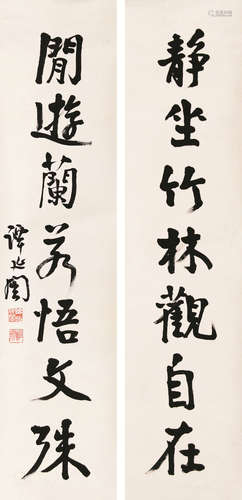 静坐竹林觀自在
閒遊蘭若悟文殊
譚延闓